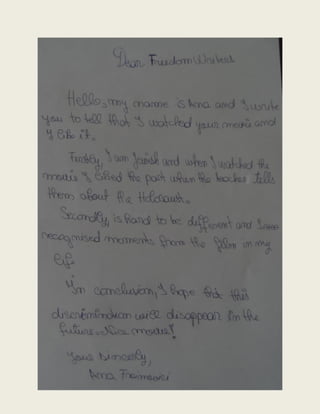 Dear Freedom Writers
Hello, my name is Ana and I write
you to tell that I watched your movie and
I like it.
Firstly, I am Jewish and when I watched the
movie I liked the part when the teacher tells
them about the Holocaust.
Secondly, is hard to be different and I
recognised moments from the film in my
life.
In conclusion, I hope that this
discrimination will disappear in the
future. Nice movie!
Yours sincerely,
Ana